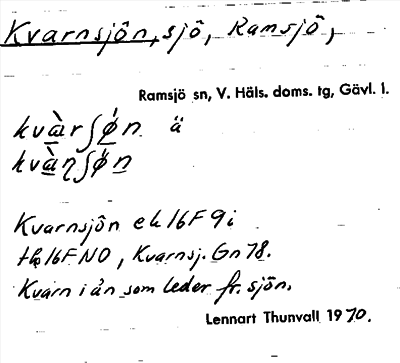 Kvarnsjön, sjö, Ramsjö,
Ramsjö sn, V. Häls. doms. tg, Gävl. l.
kvàrʃǿn ä
kvàηʃǿn
Kvarnsjön ek 16F 9i
tk 16F NO, Kvarnsj. Gn 78.
Kvarn i ån som leder fr. sjön.
Lennart Thunvall 1970.